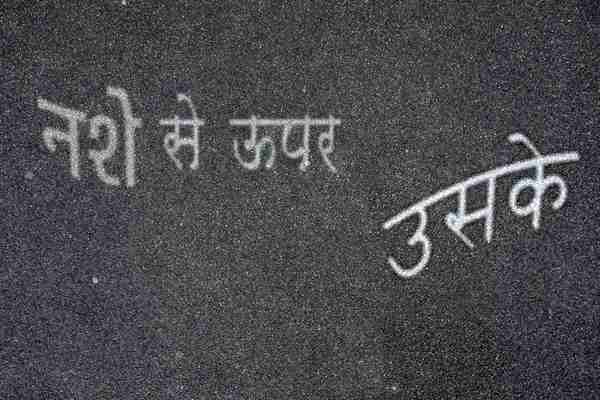 नशे से ऊपर
उसके